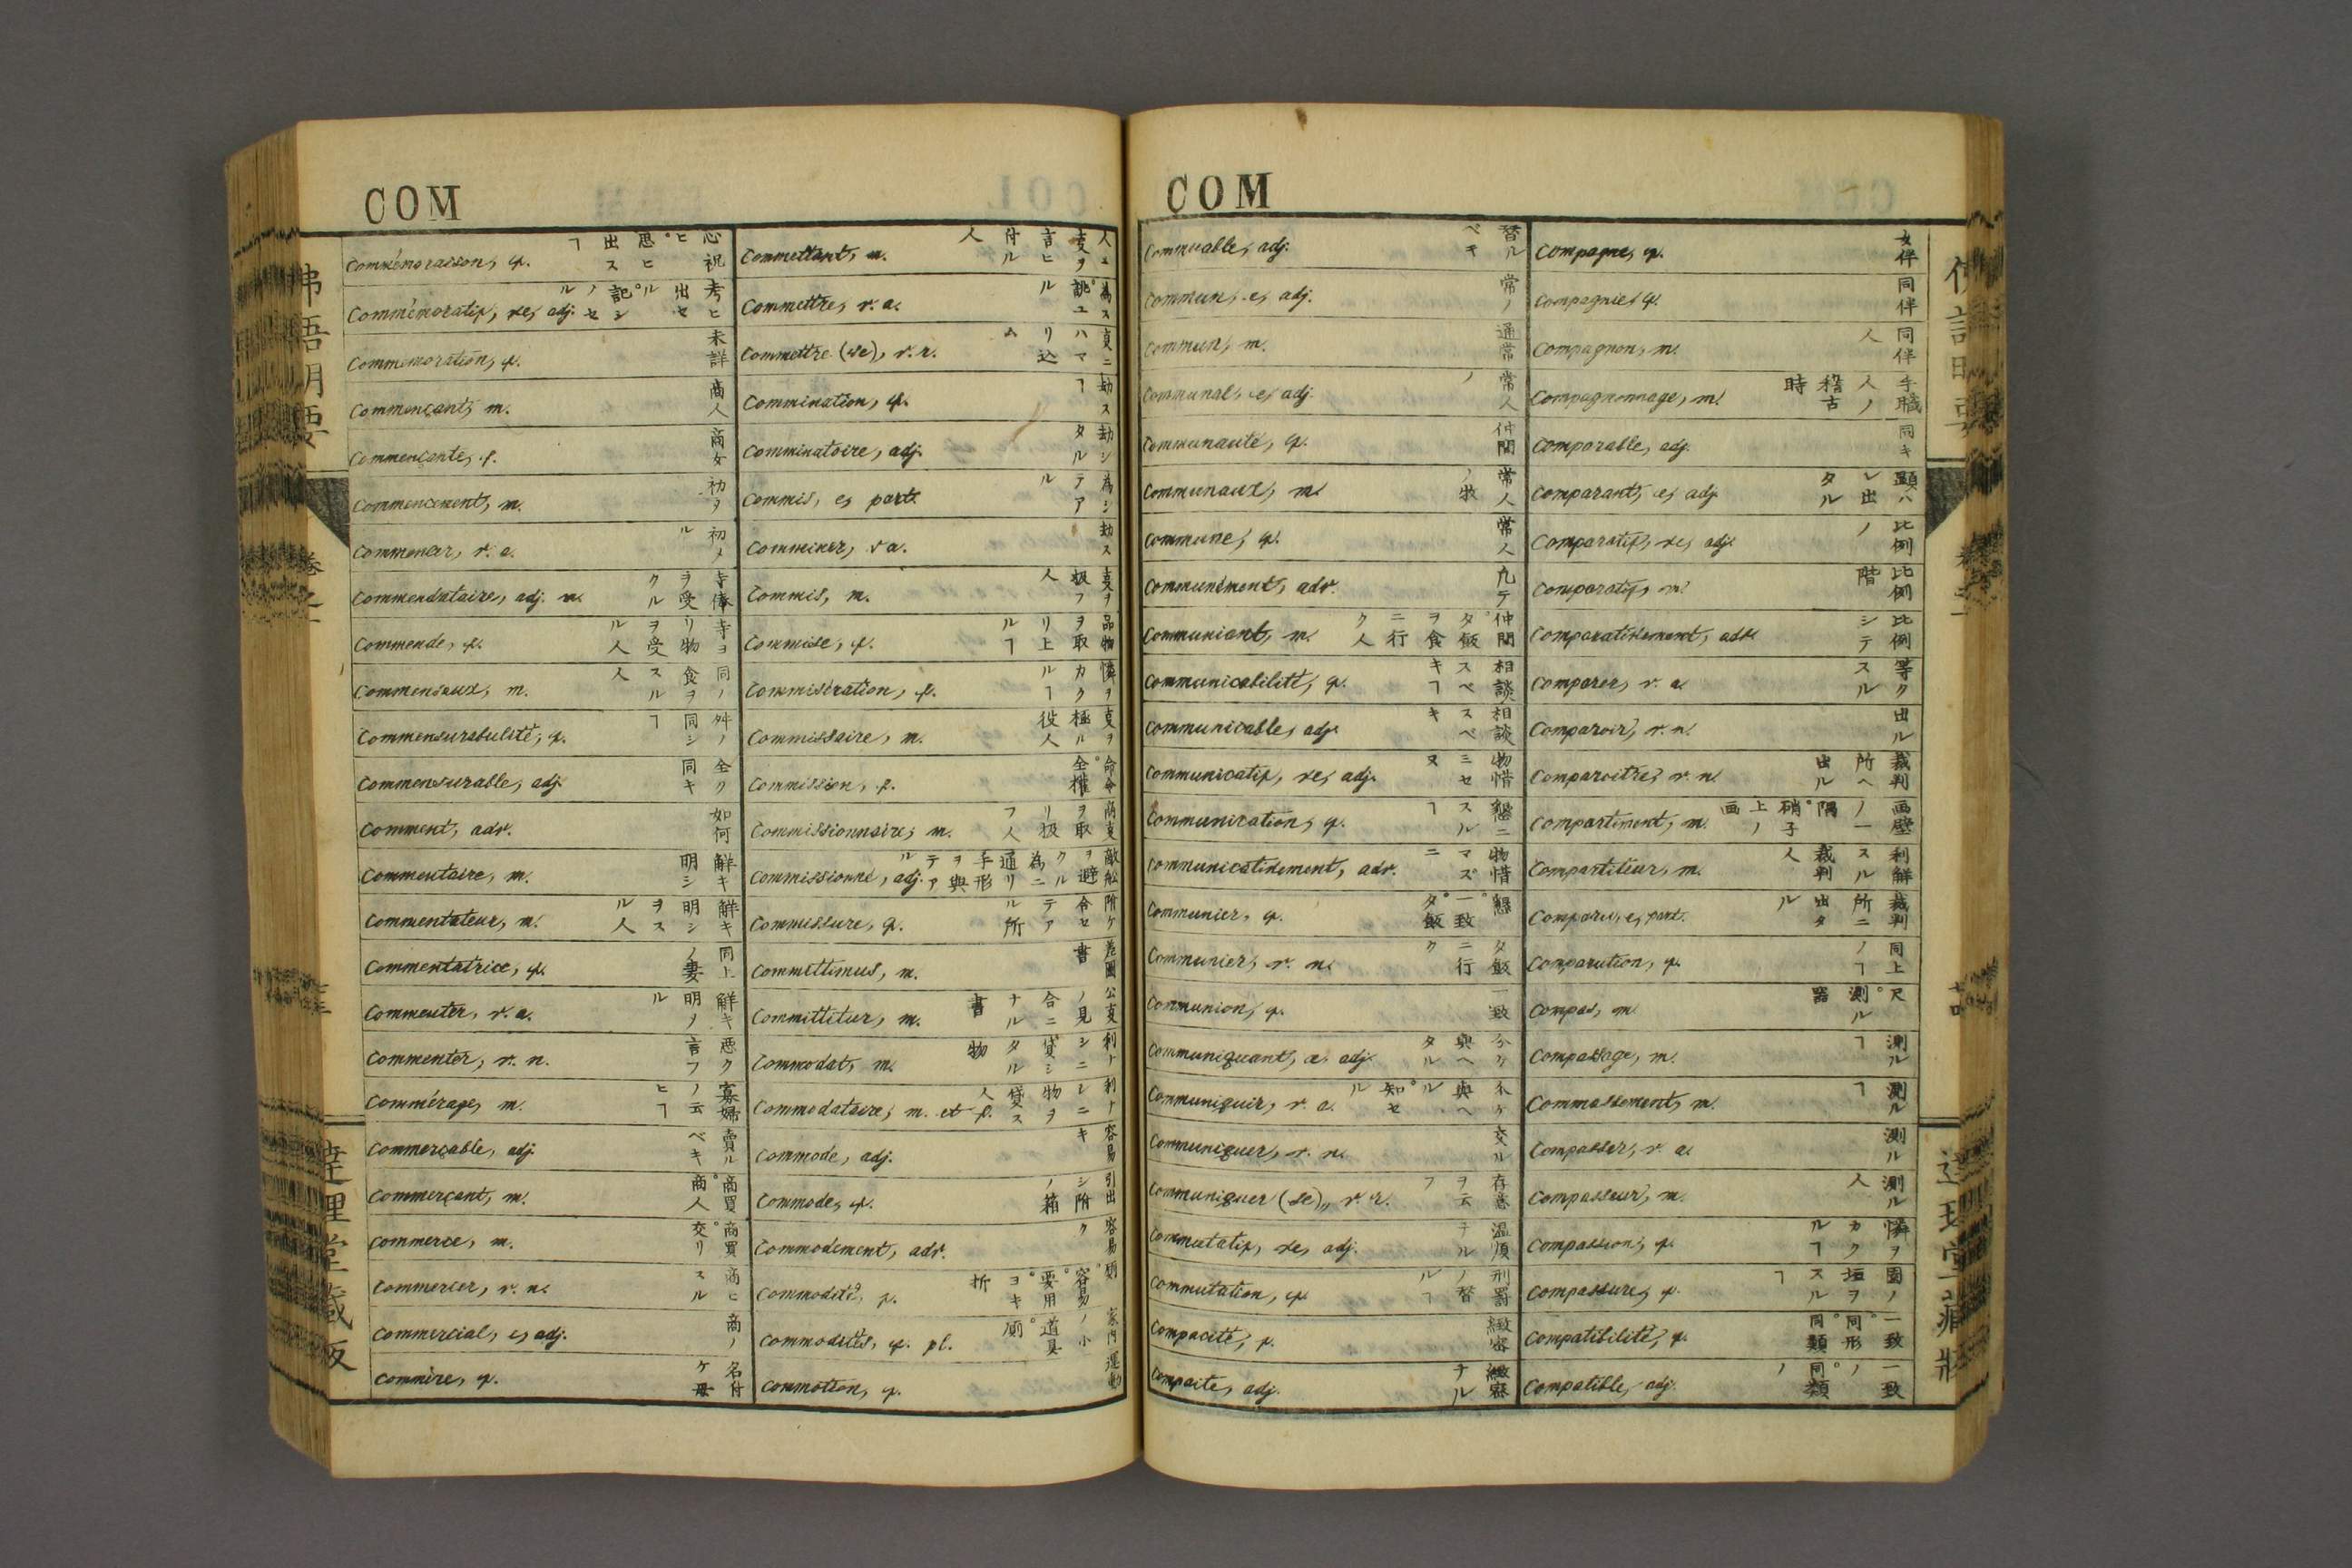 COM
Commémoraison, f. 心祝ヒ゜思ヒ出スヿ
Commémoratif, ve, adj. 考ヒ出セル゜記シセルノ
Commemoration, f. 未詳
Commençant, m. 商人
Commençante, f. 商女
Commencement, m. 初ヲ
Commencer, v. a. 初メル
Commendataire, adj. m. 寺俸ヲ受クル
Commende, f. 寺ヨリ物ヲ受ル人
Commensaux, m. 同ノ食ヲスル人
Commensurabulité, f. 舛ノ同シヿ
Commensurable, adj. 全ク同キ
Comment, adv. 如何
Commentaire, m. 解キ明シ
Commentateur, m. 解キ明シヲスル人
Commentatrice, f. 同上ノ妻
Commenter, v. a. 解キ明ノル
Commenter, v. n. 悪ク言フ
Commérage, m. 寡婦ノ云ヒヿ
Commerçable, adj. 賣ルベキ
Commerçant, m. 商買゜商人
Commerce, m. 商買゜交リ
Commercer, v. n. 商ヒスル
Commercial, e, adj. 商ノ
Commère, f. 名付ケ母
Commettant, m. 人ニ支ヲ言ヒ付ル人
Commettre, v. a. 為ス゜誂ユル
Commettre (se), v. r. 支ニハマリ込ム
Commination, f. 劫スヿ
Comminatoire, adj. 劫シタル
Commis, e, part. 為シテアル
Comminer, v a. 劫ス
Commis, m. 支ヲ扱フ人
Commise, f. 品物ヲ取リ上ルヿ
Commisération, f. 憐ヲカクルヿ
Commissaire, m. 支ヲ極ル役人
Commission, f. 命令゜全權
Commissionnaire, m. 商支ヲ取リ扱フ人
Commissionné, adj. 敵舩ヲ避クル為ニ通リ手形ヲ與テアル
Commissure, f. 附ケ合セテアル所
Committimus, m. 差圖書
Committitur, m. 公支ノ見合ニナル書
Commodat, m. 利ナシニ貸シタル物
Commodataire, m. et f. 利ナシニ物ヲ貸ス人
Commode, adj. 容易キ
Commode, f. 引出シ所ノ箱
Commodement, adv. 容易ク
Commodité, f. 容易゜要用゜ヨキ折
Commodités, f. pl. 家内ノ小道具゜厠
Commotion, f. 運動
COM
Commuable, adj. 替ルベキ
Commun, e, adj. 常ノ
Commun, m. 通常
Communal, e, adj. 常人ノ
Communauté, f. 仲間
Communaux, m. 常人ノ牧
Commune, f. 常人
Communément, adv. 凡テ
Communiant, m. 仲間゜夕飯ヲ食ニ行ク人
Communicabilité, f. 相談スベキヿ
Communicable, adj. 相談スベキ
Communicatif, ve, adj. 物惜ミセヌ
Communication, f. 懇ニスルヿ
Communicativement, adv. 物惜マズニ
Communier, f. 懇゜一致゜夕飯
Communier, v. n. 夕飯ニ行ク
Communion, f. 一致
Communiquant, e, adj. 分ケ與ヘタル
Communiquir, v. a. 分ケ與ヘル゜知セル
Communiquer, v. n. 交ル
Communiquer (se), v. r. 存意ヲ云フ
Commutatif, ve, adj. 温順ナル
Commutation, f. 刑罰ノ替ルヿ
Compacité, f. 緻密
Compacte, adj. 緻密ナル
Compagne, f. 女伴
Compagnie, f. 同伴
Compagnon, m. 同伴人
Compagnonnage, m. 手職人ノ稽古時
Comparable, adj. 同キ
Comparant, e, adj. 顕ハレ出タル
Comparatif, ve, adj. 比例ノ
Comparatif, m. 比例階
Comparativement, adv. 比例シテ
Comparer, v. a. 等クスル
Comparoir, v. n. 出ル
Comparoitre, v. n. 裁判所ヘ出ル
Compartiment, m. 画壁ノ一隅゜硝子ノ上画
Compartiteur, m. 利解スル裁判人
Comparu, e, part. 裁判所ニ出タル
Comparution, f. 同上ノヿ
Compas, m. 尺゜測ル器
Compassage, m. 測ルヿ
Commassement, m. 測ルヿ
Compasser, v. a. 測ル
Compasseur, m. 測ル人
Compassion, f. 憐ヲカクルヿ
Compassure, f. 園ノ垣ヲスルヿ
Compatibilité, f. 一致゜同形゜同類
Compatible, adj. 一致ノ゜同類ノ